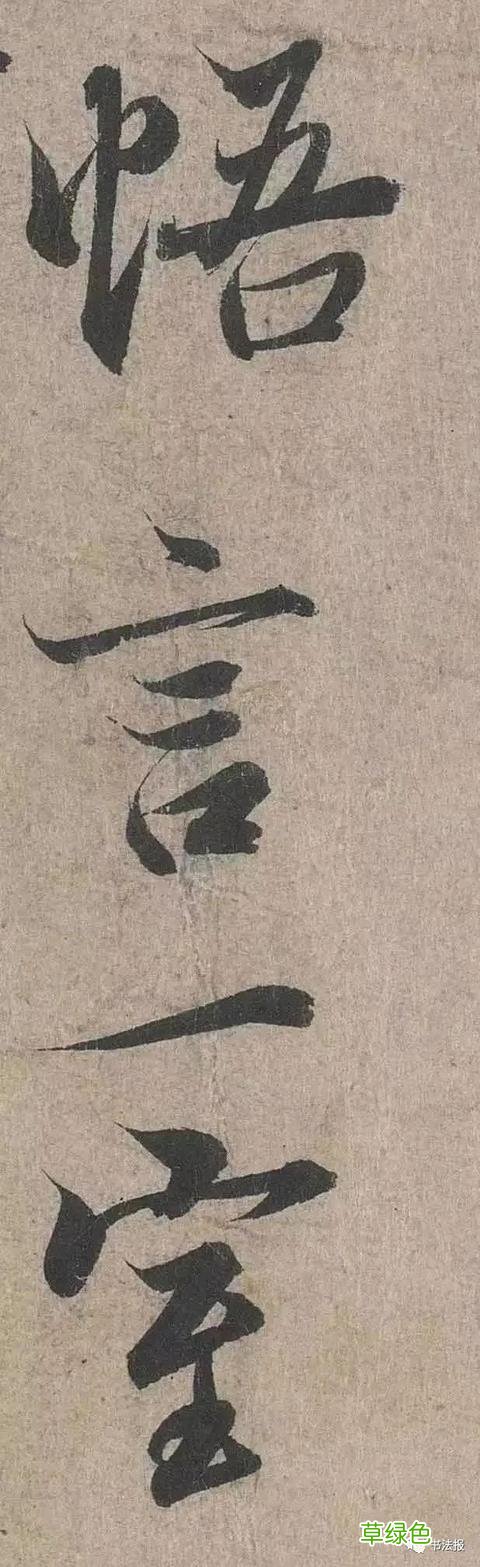 悟言一室
草绿色
书法报